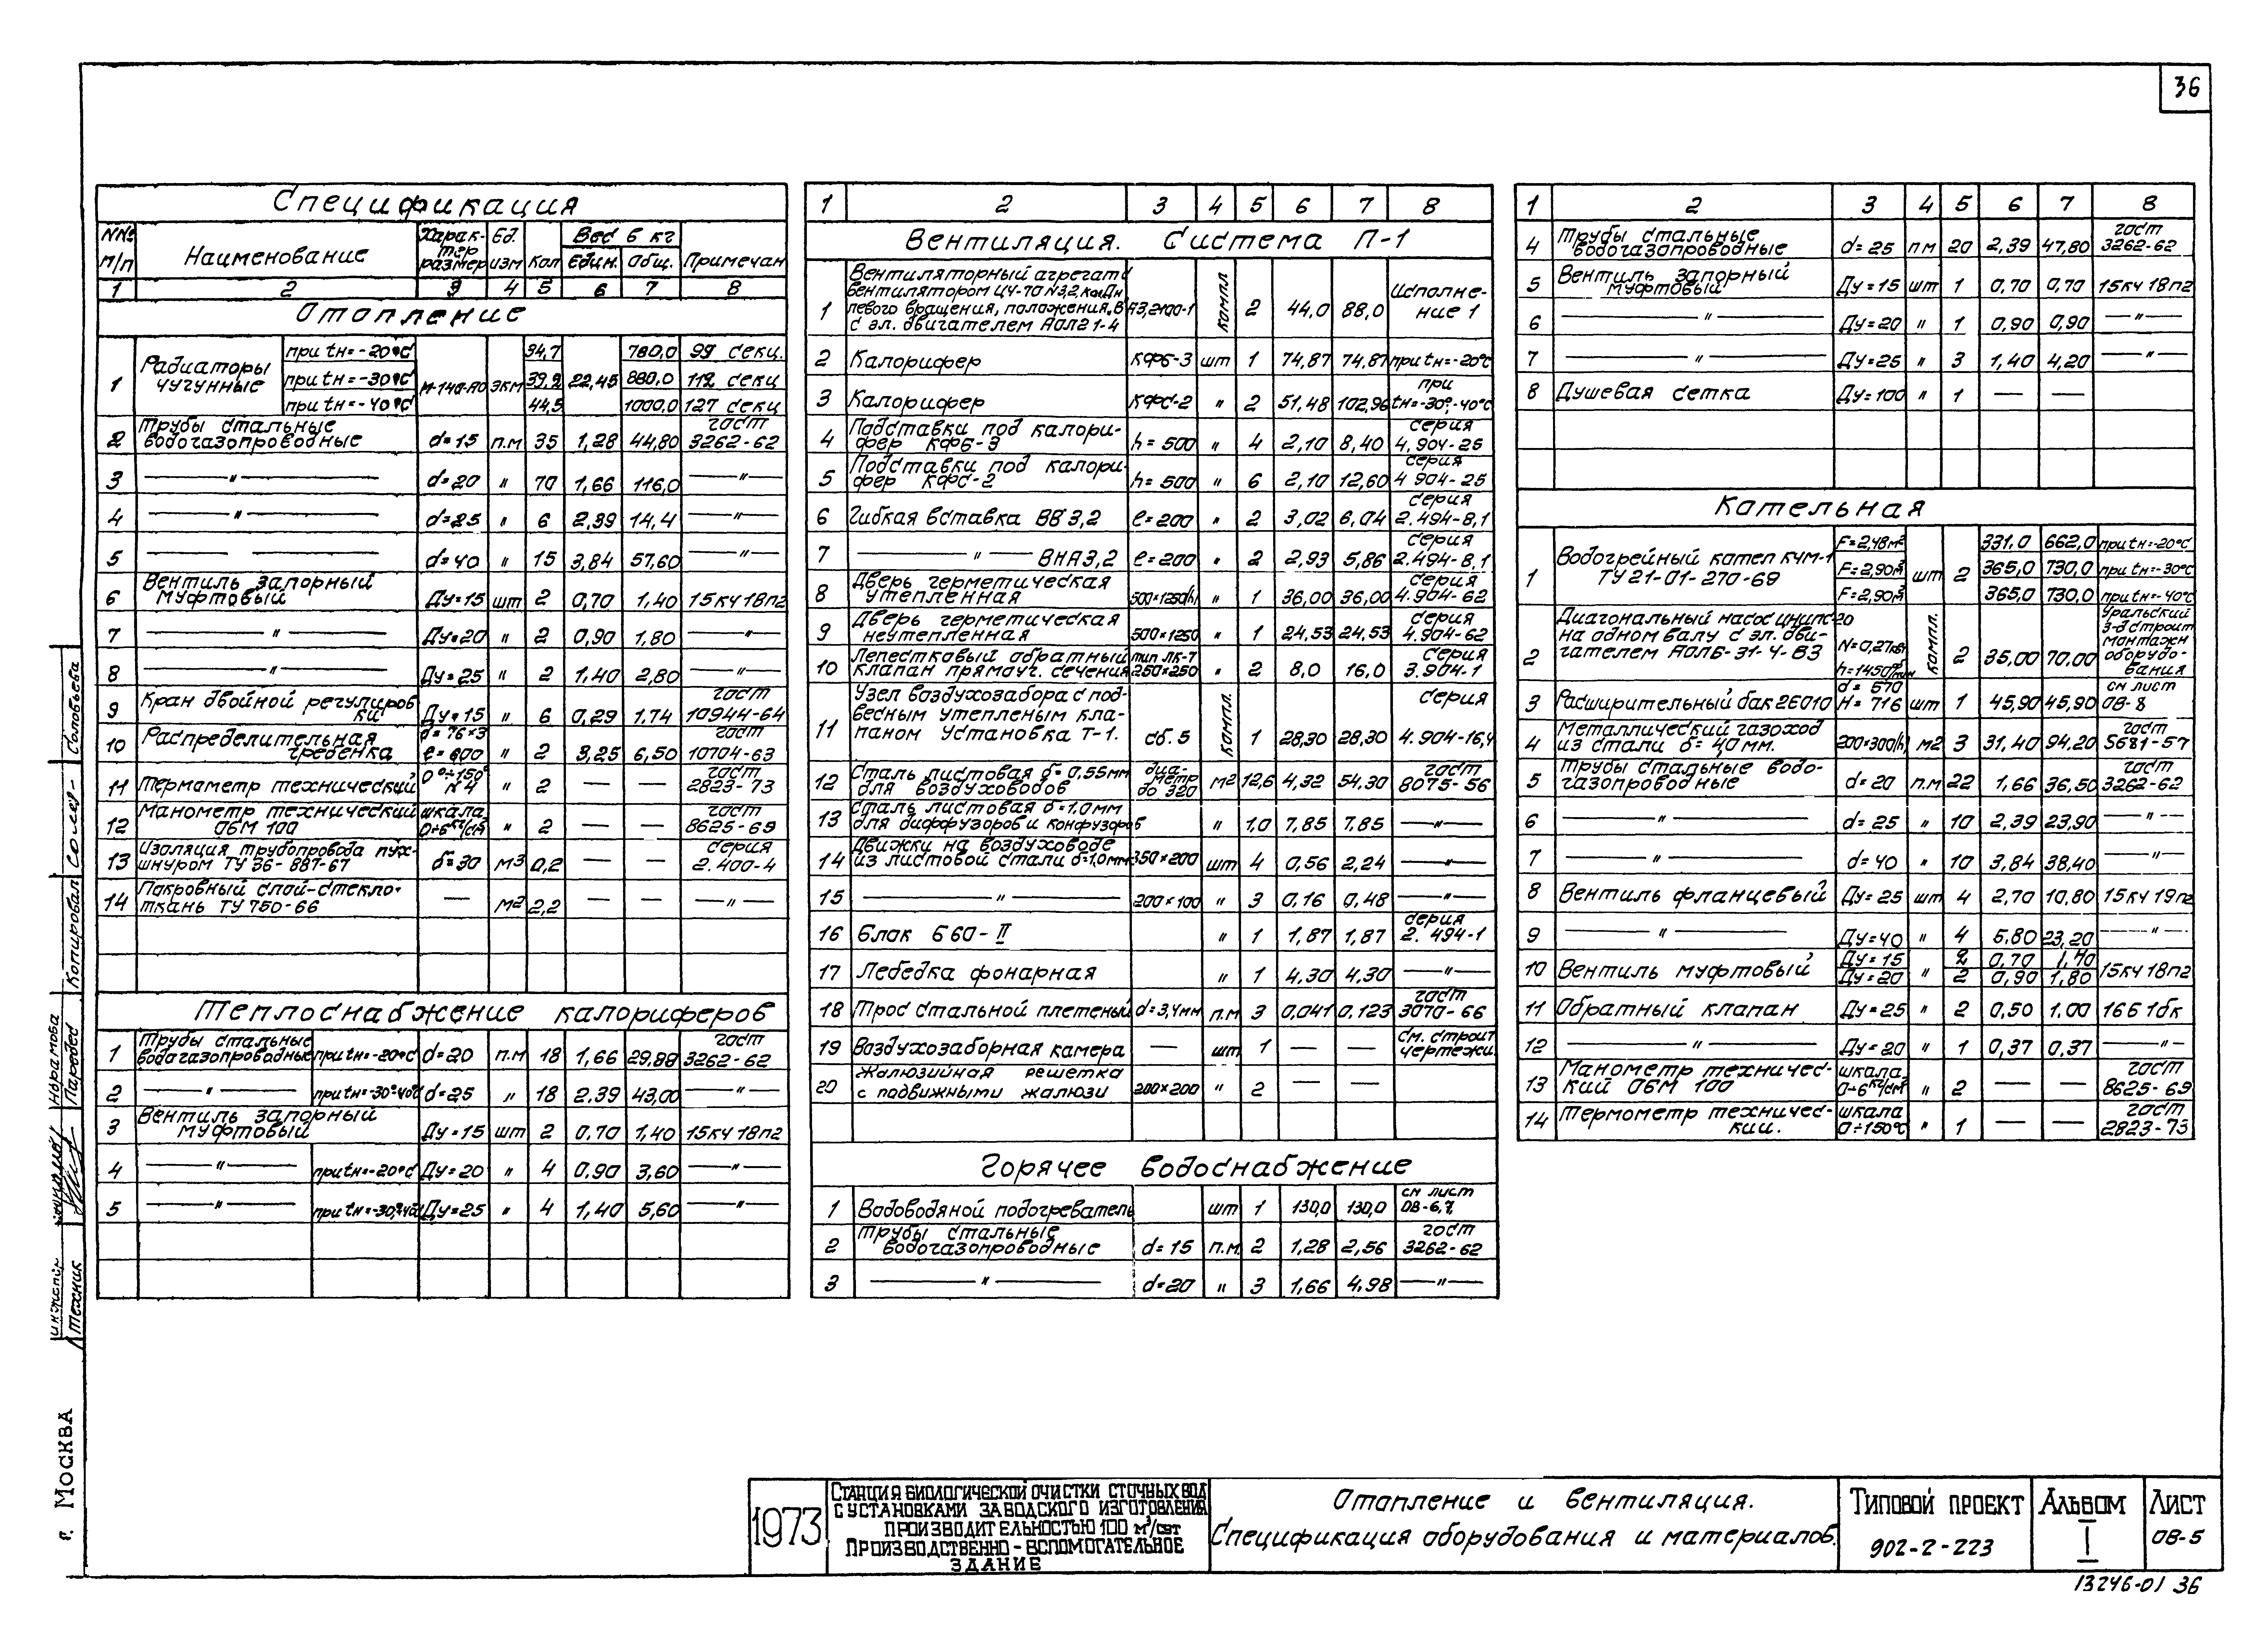 36
Спецификация
NNo п/п | Наименование | Характер размер | Ед. изм | Кол | Вес в кг един. | общ. | Примечан
1 | 2 | 3 | 4 | 5 | 6 | 7 | 8
Отопление
1 | Радиаторы чугунные | при tн=-20°С | М-140-АО | экм | 34,7 | 22,45 | 780,0 | 99 секц.
при tн=-30°С | 39,2 | 880,0 | 112 секц
при tн=-40°С | 44,5 | 1000,0 | 127 секц
2 | Трубы стальные водогазопроводные | d=15 | п.м | 35 | 1,28 | 44,80 | гост 3262-62
3 | —"— | d=20 | " | 70 | 1,66 | 116,0 | —"—
4 | —"— | d=25 | " | 6 | 2,39 | 14,4 | —"—
5 | — — | d=40 | " | 15 | 3,84 | 57,60 | —"—
6 | Вентиль запорный муфтовый | Ду=15 | шт | 2 | 0,70 | 1,40 | 15кч 18п2
7 | —"— | Ду=20 | " | 2 | 0,90 | 1,80 | —"—
8 | —"— | Ду=25 | " | 2 | 1,40 | 2,80 | —"—
9 | Кран двойной регулировки | Ду=15 | " | 6 | 0,29 | 1,74 | гост 10944-64
10 | Распределительная гребенка | d=76×3 ℓ=600 | " | 2 | 3,25 | 6,50 | гост 10704-63
11 | Термометр технический | 0°÷150° N4 | " | 2 | — | — | гост 2823-73
12 | Манометр технический ОБМ 100 | шкала 0÷6кг/см² | " | 2 | — | — | гост 8625-69
13 | Изоляция трубопровода пухшнуром ТУ 36-887-67 | δ=30 | м3 | 0,2 | — | — | серия 2.400-4
14 | Покровный слой-стеклоткань ТУ 750-66 | — | м2 | 2,2 | — | — | —"—
Теплоснабжение калориферов
1 | Трубы стальные водогазопроводные | при tн=-20°С | d=20 | п.м | 18 | 1,66 | 29,88 | гост 3262-62
2 | —"— | при tн=-30°-40°С | d=25 | " | 18 | 2,39 | 43,00 | —"—
3 | Вентиль запорный муфтовый | Ду=15 | шт | 2 | 0,70 | 1,40 | 15кч 18п2
4 | —"— | при tн=-20°С | Ду=20 | " | 4 | 0,90 | 3,60 | —"—
5 | —"— | при tн=-30°-40° | Ду=25 | " | 4 | 1,40 | 5,60 | —"—
1 | 2 | 3 | 4 | 5 | 6 | 7 | 8
Вентиляция. Система П-1
1 | Вентиляторный агрегат с вентилятором Ц4-70 N3,2, левого вращения, положения В с эл. двигателем АОЛ21-4 | А3,2100-1 | компл. | 2 | 44,0 | 88,0 | исполнение 1
2 | Калорифер | КФБ-3 | шт | 1 | 74,87 | 74,87 | при tн=-20°С
3 | Калорифер | КФС-2 | " | 2 | 51,48 | 102,96 | при tн=-30°,-40°С
4 | Подставки под калорифер КФБ-3 | h=500 | " | 4 | 2,10 | 8,40 | серия 4.904-25
5 | Подставки под калорифер КФС-2 | h=500 | " | 6 | 2,10 | 12,60 | серия 4 904-25
6 | Гибкая вставка ВВ 3,2 | ℓ=200 | " | 2 | 3,02 | 6,04 | серия 2.494-8,1
7 | —"— ВНА3,2 | ℓ=200 | " | 2 | 2,93 | 5,86 | серия 2.494-8.1
8 | Дверь герметическая утепленная | 500×1250(h) | " | 1 | 36,00 | 36,00 | серия 4.904-62
9 | Дверь герметическая неутепленная | 500×1250 | " | 1 | 24,53 | 24,53 | серия 4.904-62
10 | Лепестковый обратный клапан прямоуг. сечения | тип ЛК-7 250×250 | " | 2 | 8,0 | 16,0 | серия 3.904-1
11 | Узел воздухозабора с подвесным утепленым клапаном Установка Т-1. | сб. 5 | компл. | 1 | 28,30 | 28,30 | серия 4.904-16,4
12 | Сталь листовая δ=0,55мм для воздуховодов | диаметр до 320 | м2 | 12,6 | 4,32 | 54,30 | гост 8075-56
13 | Сталь листовая δ=1.0мм для диффузоров и конфузоров | " | 1,0 | 7,85 | 7,85 | —"—
14 | Движки на воздуховоде из листовой стали δ=1,0мм | 350×200 | шт | 4 | 0,56 | 2,24 | —"—
15 | —"— | 200×100 | " | 3 | 0,16 | 0,48 | —"—
16 | Блок Б60-II | " | 1 | 1,87 | 1,87 | серия 2.494-1
17 | Лебедка фонарная | " | 1 | 4,30 | 4,30 | —"—
18 | Трос стальной плетеный | d=3,4мм | п.м | 3 | 0,041 | 0,123 | гост 3070-66
19 | Воздухозаборная камера | — | шт | 1 | — | — | см. строит чертежи.
20 | Жалюзийная решетка с подвижными жалюзи | 200×200 | " | 2 | — | —
Горячее водоснабжение
1 | Водоводяной подогреватель | шт | 1 | 130,0 | 130,0 | см лист ОВ-6,7
2 | Трубы стальные водогазопроводные | d=15 | п.м. | 2 | 1,28 | 2,56 | гост 3262-62
3 | —"— | d=20 | " | 3 | 1,66 | 4,98 | —"—
1 | 2 | 3 | 4 | 5 | 6 | 7 | 8
4 | Трубы стальные водогазопроводные | d=25 | п м | 20 | 2,39 | 47,80 | гост 3262-62
5 | Вентиль запорный муфтовый | Ду=15 | шт | 1 | 0,70 | 0,70 | 15кч 18п2
6 | —"— | Ду=20 | " | 1 | 0,90 | 0,90 | —"—
7 | —"— | Ду=25 | " | 3 | 1,40 | 4,20 | —"—
8 | Душевая сетка | Ду=100 | " | 1 | — | —
Котельная
1 | Водогрейный котел КЧМ-1 ТУ 21-01-270-69 | F=2,48м² | шт | 2 | 331,0 | 662,0 | при tн=-20°С
F=2,90м² | 365,0 | 730,0 | при tн=-30°С
F=2,90м² | 365,0 | 730,0 | при tн=-40°С
2 | Диагональный насос ЦНИПС-20 на одном валу с эл. двигателем АОЛБ-31-4-В3 | N=0,27кВт n=1450об/мин | компл. | 2 | 35,00 | 70,00 | Уральский з-д строит монтажн оборудования
3 | Расширительный бак 2Б010 | d=570 H=716 | шт | 1 | 45,90 | 45,90 | см лист ОВ-8
4 | Металлический газоход из стали δ=40мм. | 200×300(h) | м2 | 3 | 31,40 | 94,20 | гост 5681-57
5 | Трубы стальные водогазопроводные | d=20 | п.м | 22 | 1,66 | 36,50 | гост 3262-62
6 | —"— | d=25 | " | 10 | 2,39 | 23,90 | —"—
7 | —"— | d=40 | " | 10 | 3,84 | 38,40 | —"—
8 | Вентиль фланцевый | Ду=25 | шт | 4 | 2,70 | 10,80 | 15кч 19п2
9 | —"— | Ду=40 | " | 4 | 5,80 | 23,20 | —"—
10 | Вентиль муфтовый | Ду=15 | " | 2 | 0,70 | 1,40 | 15кч 18п2
Ду=20 | 2 | 0,90 | 1,80
11 | Обратный клапан | Ду=25 | " | 2 | 0,50 | 1,00 | 16Б 1бк
12 | —"— | Ду=20 | " | 1 | 0,37 | 0,37 | —"—
13 | Манометр технический ОБМ 100 | шкала 0÷6кг/см² | " | 2 | — | — | гост 8625-69
14 | Термометр технический. | шкала 0÷150°С | " | 1 | — | — | гост 2823-73
Копировал Соловьева
техник
г. Москва
1973
Станция биологической очистки сточных вод
с установками заводского изготовления
производительностью 100 м³/сут
Производственно-вспомогательное
здание
Отопление и вентиляция.
Спецификация оборудования и материалов.
Типовой проект
902-2-223
Альбом
I
Лист
ОВ-5
13246-01 36